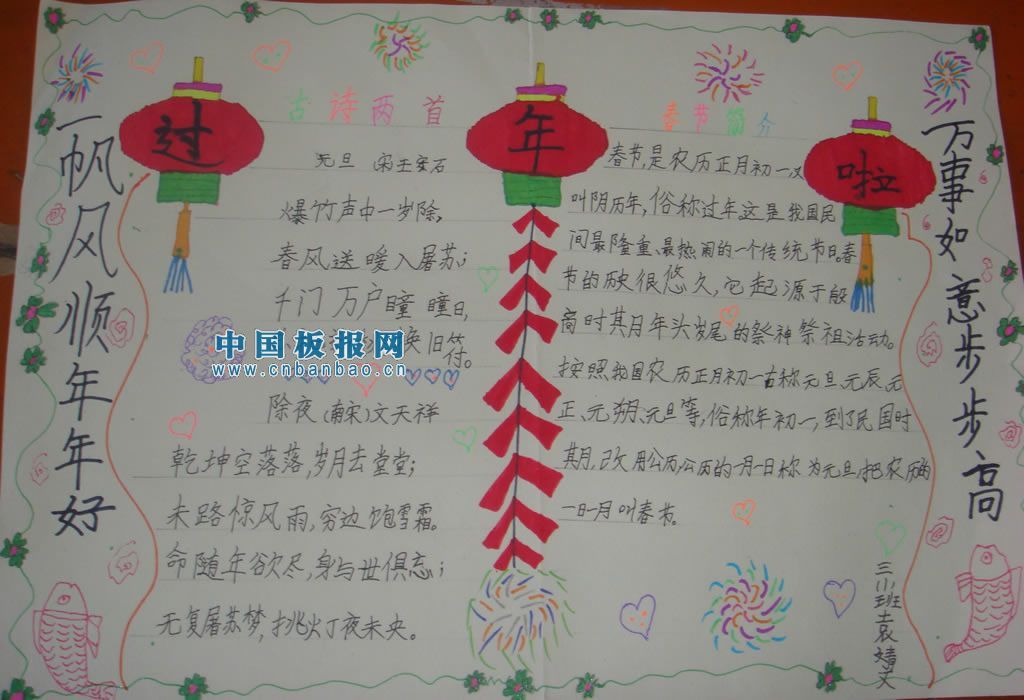 一帆风顺年年好
过
年
啦
万事如意步步高
古诗两首
元旦 宋王安石
爆竹声中一岁除,
春风送暖入屠苏;
千门万户瞳瞳日,
换旧符。
中国板报网
www.cnbanbao.cn
除夜(南宋)文天祥
乾坤空落落,岁月去堂堂;
末路惊风雨,穷边饱雪霜。
命随年欲尽,身与世俱忘;
无复屠苏梦,挑灯夜未央。
春节简介
春节,是农历正月初一,又
叫阴历年,俗称过年这是我国民
间最隆重、最热闹的一个传统节日。春
节的历史很悠久,它起源于殷
商时其月年头岁尾的祭神祭祖活动。
按照我国农历正月初一古称元旦、元辰、元
正、元朔、元旦等,俗称年初一,到了民国时
其月,改用公历,公历的一月一日称为元旦,把农历的
一日一月叫春节。
三小班袁婧